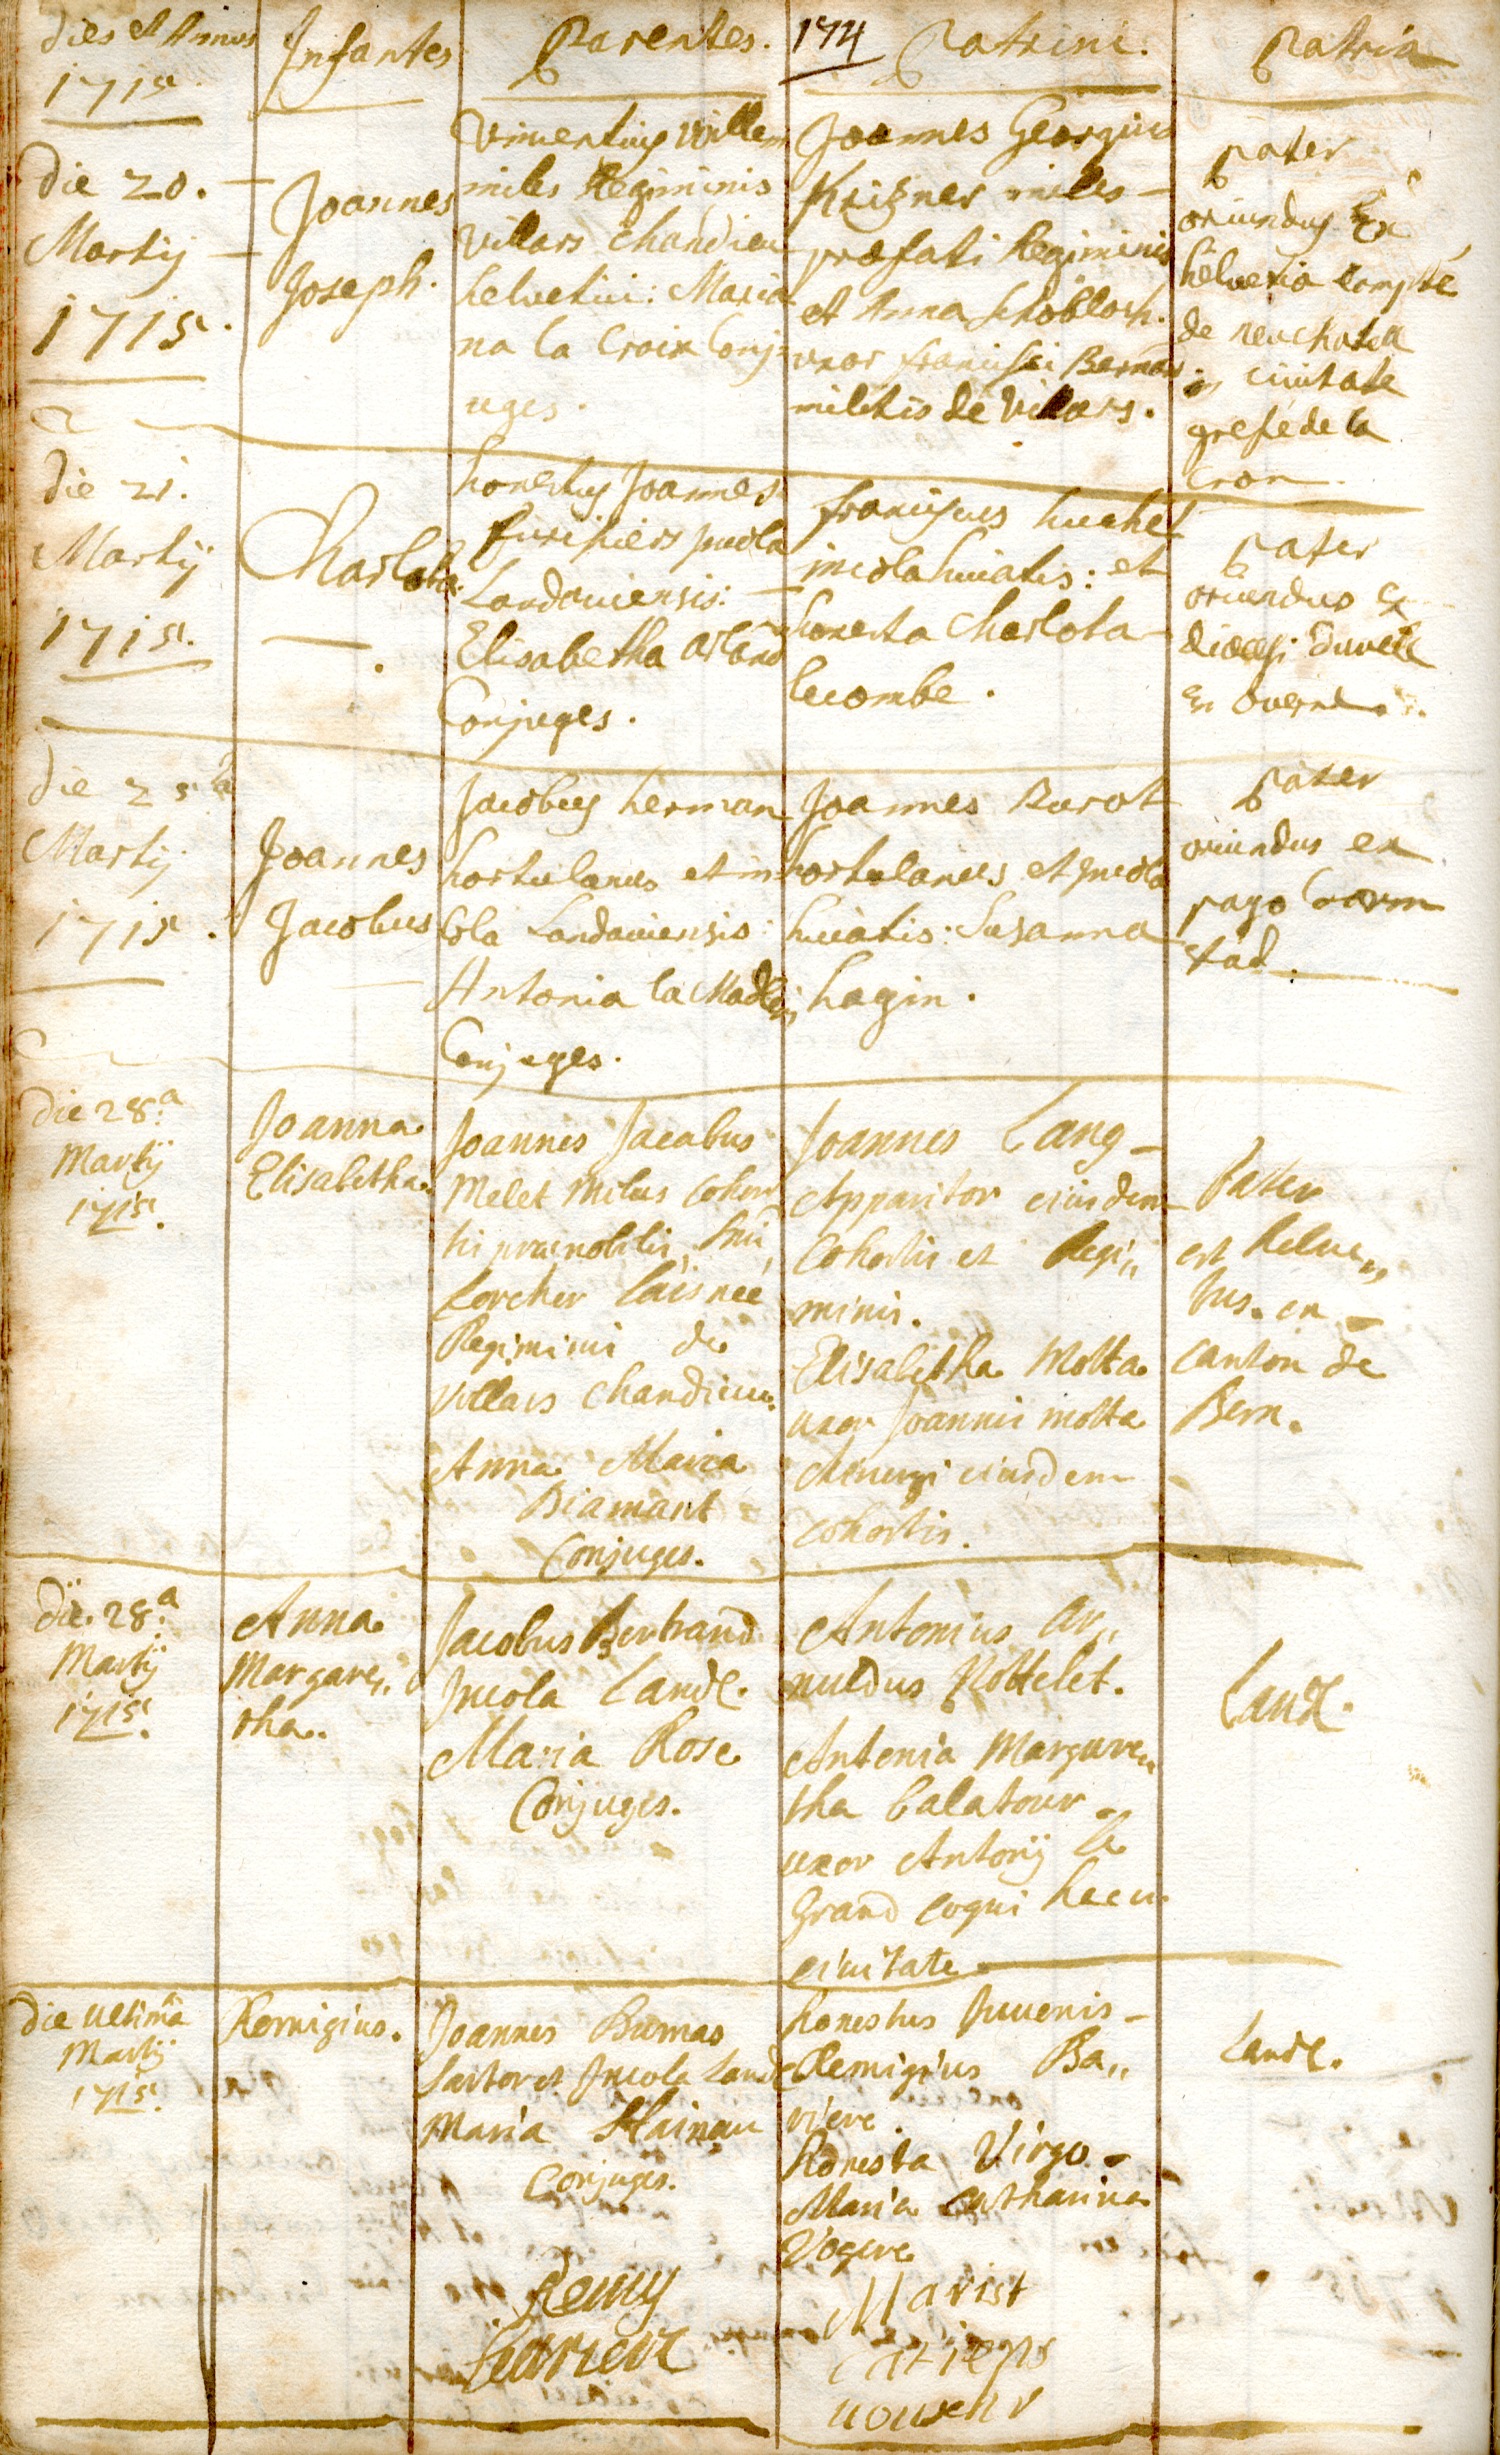 Dies et Annus
1715.
Infantes
Parentes.
174
Patrini.
Patria
die 20.
Martij
1715.
Joannes
Joseph.
Vincentius Willem
miles Regiminis
Villars chandieu
helvetici: Maria
na la Croix Conj
uges.
Joannes Georgius
miles
præfati Regiminis
et Anna Schobloch.
uxor francisci Bernar
militis de Villars.
pater
oriundus Ex
helvetia compté
de neuchatel
in civitate
grefé de la
Cron
die 21.
Martij
1715.
Charlota.
honestus Joannes
incola
Landauiensis:
Elisabetha
Conjuges.
franciscus huchet
incola huiatis: et
honesta Charlota
lecombe.
pater
oriundus ex
dioecesi
En
die 25ta
Martij
1715.
Joannes
Jacobus
Jacobus herman
hortulanus et in
cola Landauiensis:
Antonia la Madlen
Conjuges.
Joannes Purot
hortulanus et incola
huiatis: Susanna
hagin.
pater
oriundus ex
pago Crorm
stad.
die 28.a
Martij
1715.
Joanna
Elisabetha.
Joannes Jacobus
Melet Miles Cohor
tis prænobilis Dni
Lorcher l'aisnée
Regiminis de
Villars Chandieu.
Anna Maria
Diamant
Conjuges.
Joannes Lang
Apparitor eiusdem
Cohortis et Regi„
minis.
Elisabetha Motta
uxor Joannis motta
Chirurgi eiusdem
cohortis.
Pater
est helve„
tus. en
Canton de
Bern.
die 28.a
Martij
1715.
Anna
Margare„
tha.
Jacobus Bertrand
Incola Land.
Maria Rose
Conjuges.
Antonius Ar„
nuldus Pottelet.
Antonia Margare„
tha Calatour
uxor Antonij le
Grand coqui hac in
civitate
Land.
die ultima
Martij
1715.
Remigius.
Joannes Dumas
Sartor et Incola Land
Maria Hainau
Conjuges.
honestus Juvenis
Remigius Ba„
riere
honesta Virgo
Maria Catharina
Vogere
Land.
Remy
Bariere
Marist